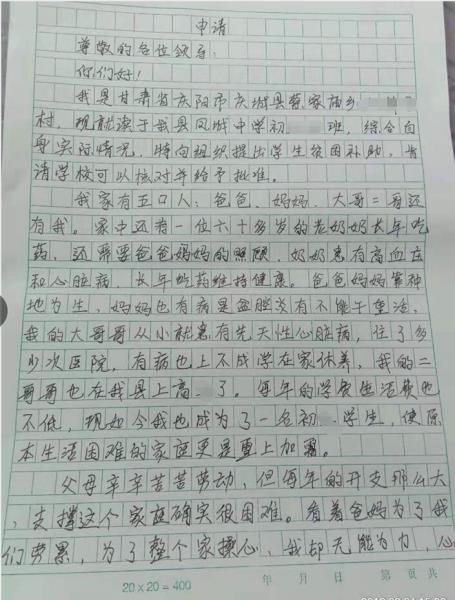 申请
尊敬的各位领导：
你们好！
我是甘肃省庆阳市庆城县蔡家庙乡
村，现就读于我县凤城中学初 班，综合自
身实际情况，特向组织提出学生贫困补助，肯
请学校可以核对并给予批准。
我家有五口人：爸爸、妈妈、大哥二哥还
有我。家中还有一位六十多岁的老奶奶长年吃
药，还需要爸爸妈妈的照顾，奶奶患有高血压
和心脏病，长年吃药维持健康。爸爸妈妈靠种
地为生，妈妈也有病是盆腔炎有不能干重活，
我的大哥哥从小就患有先天性心脏病，住了多
少次医院，有病也上不成学在家休养，我的二
哥哥也在我县上高 了。每年的学费生活费也
不低，现如今我也成为了一名初 学生，使原
本生活困难的家庭更是雪上加霜。
父母辛辛苦苦劳动，但每年的开支那么大
，支撑这个家庭确实很困难。看着爸妈为了我
们劳累，为了整个家操心，我却无能为力，心
20×20=400 年 月 日 第 页 共